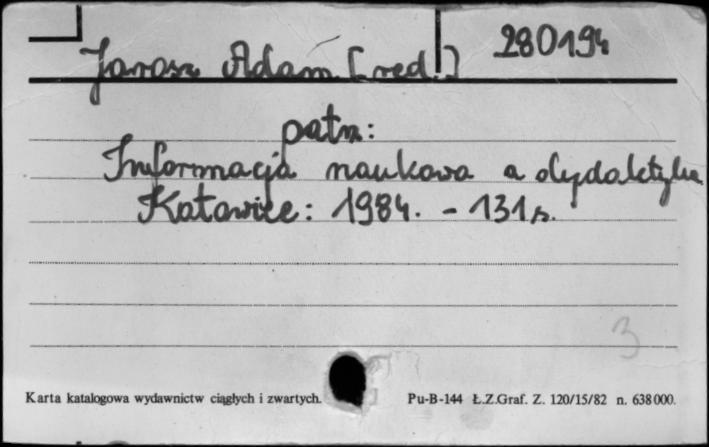 Jarosz Adam [red.] 280194
patrz:
Informacja naukowa a dydaktyka
Katowice: 1984. - 131 s.
3
Karta katalogowa wydawnictw ciągłych i zwartych. Pu-B-144 Ł.Z.Graf. Z. 120/15/82 n. 638000.